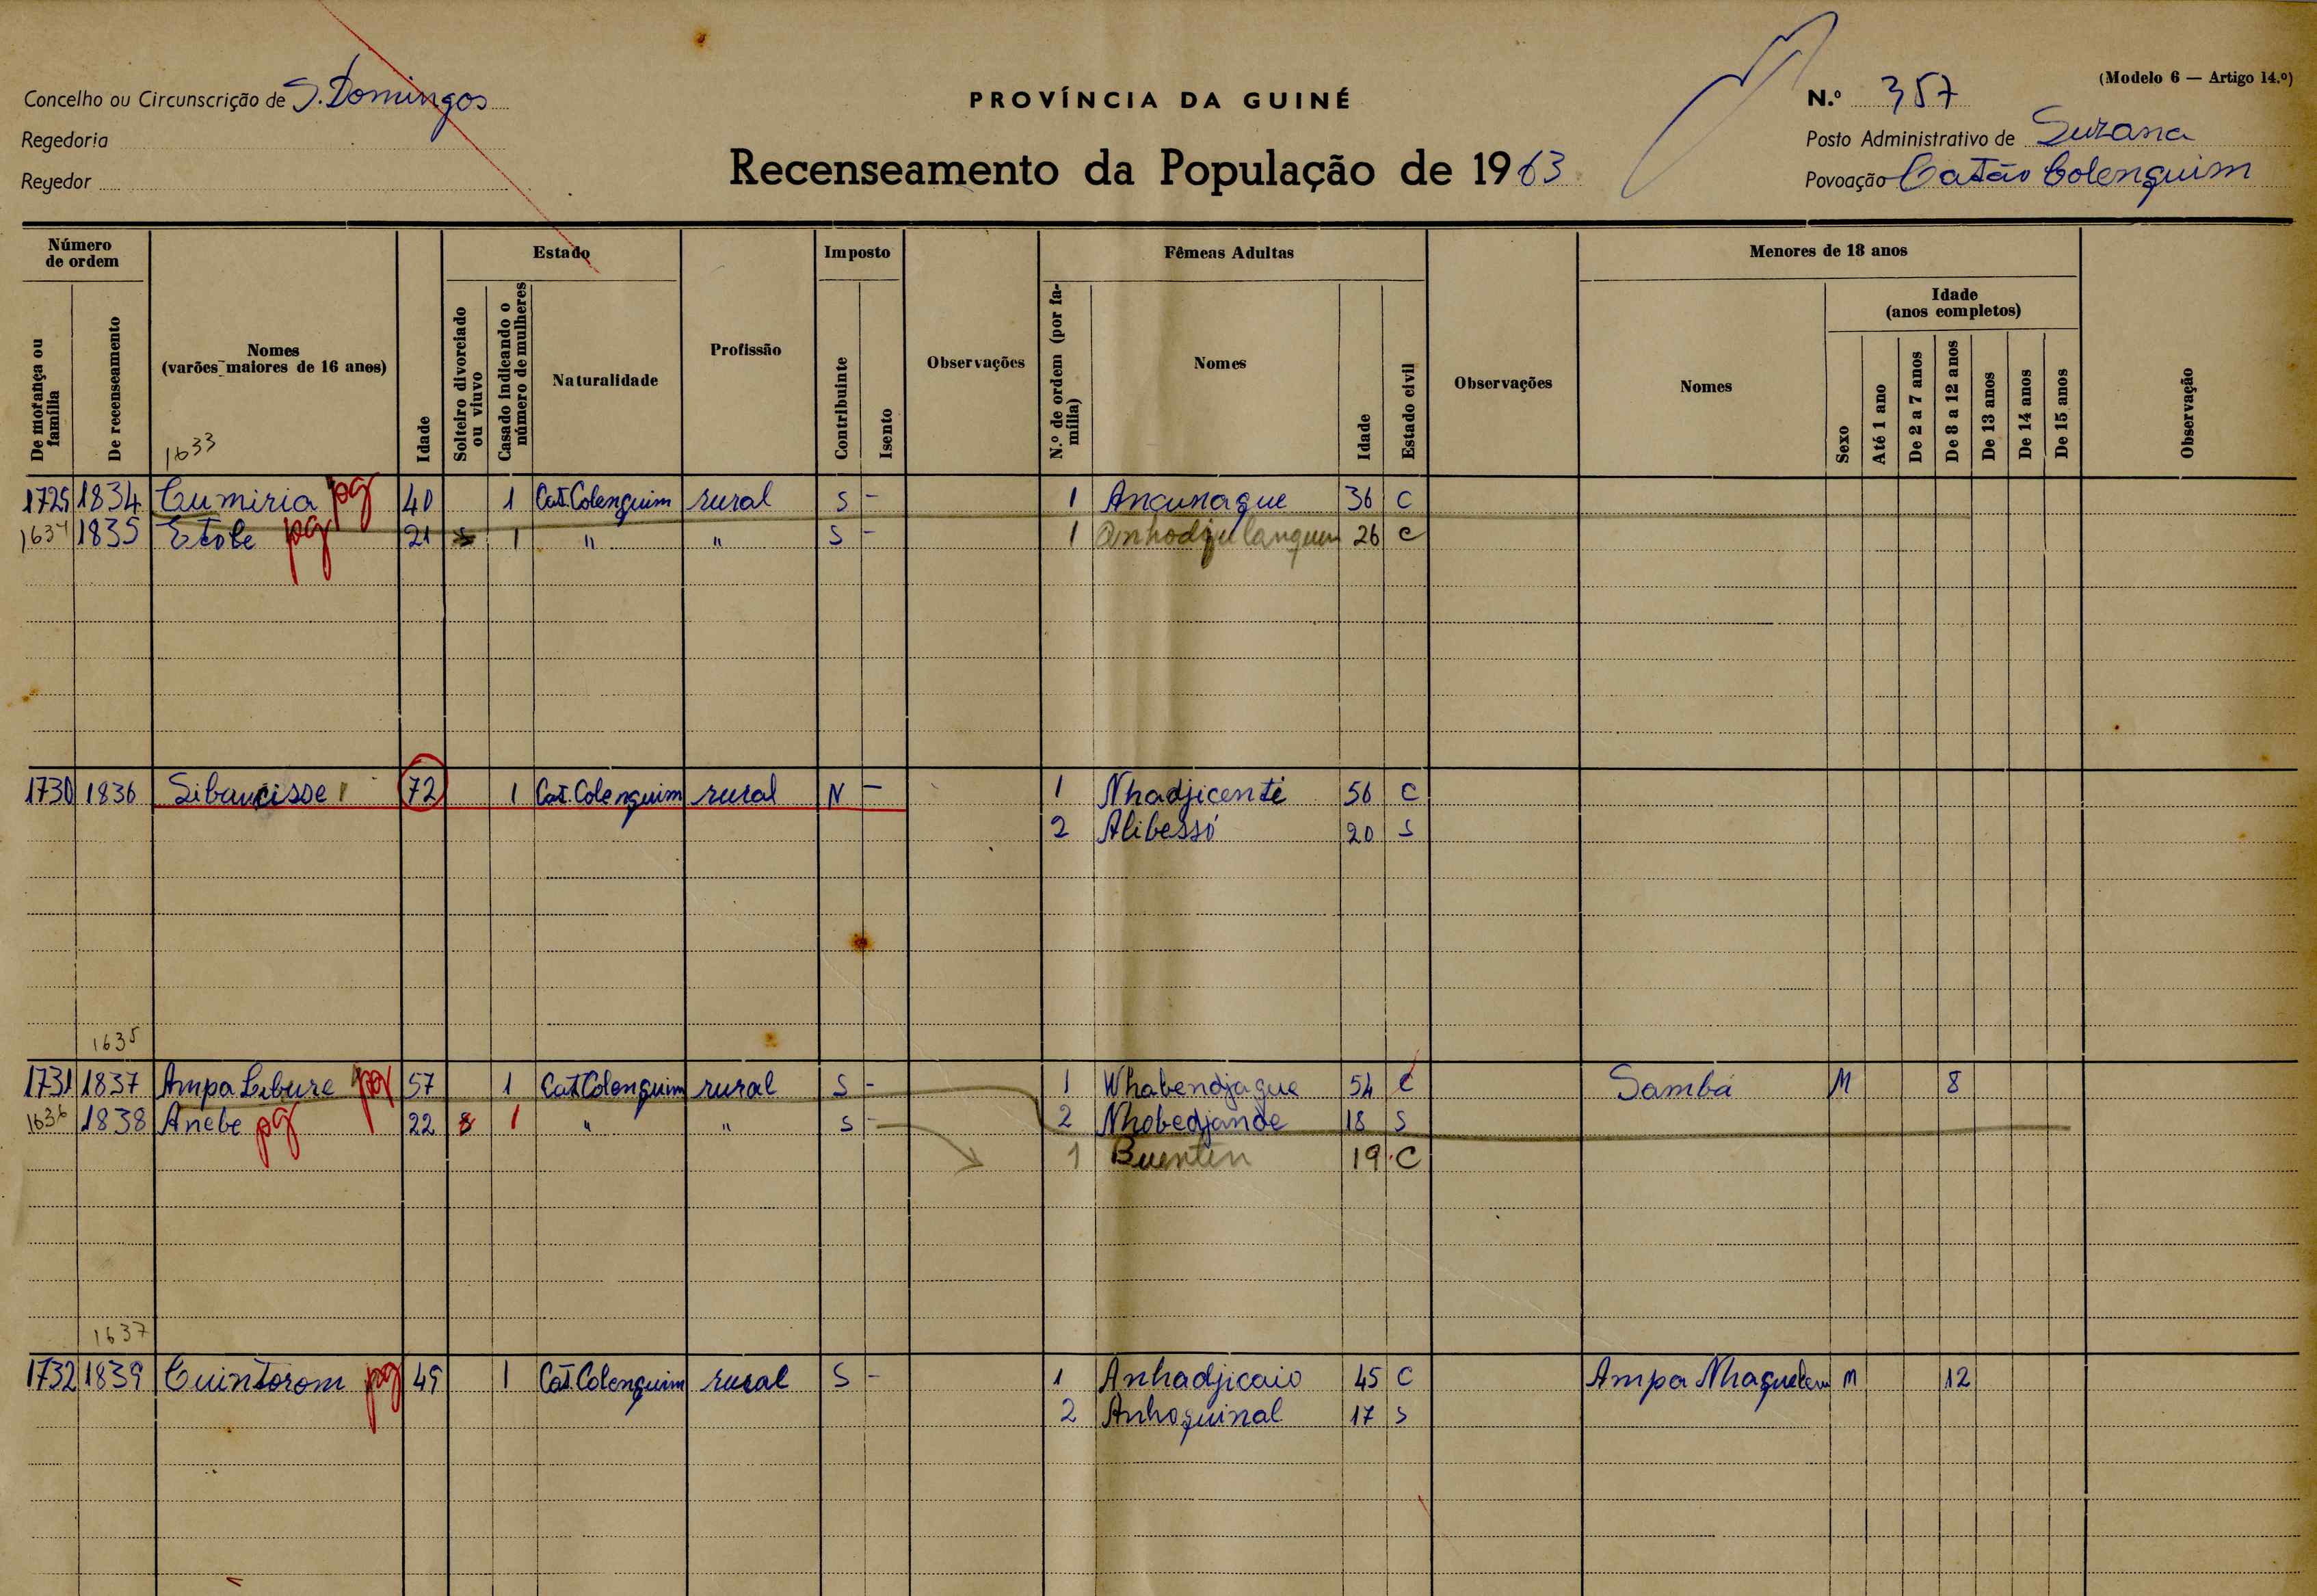 (Modelo 6 — Artigo 14.º)
Concelho ou Circunscrição de S. Domingos
PROVÍNCIA DA GUINÉ
N.º 357
Regedoria
Posto Administrativo de Suzana
Regedor
Recenseamento da População de 1963
Povoação Catão Colenquim
Número de ordem
Estado
Imposto
Fêmeas Adultas
Menores de 18 anos
De morança ou família
De recenseamento
Nomes (varões maiores de 16 anos)
Idade
Solteiro divorciado ou viuvo
Casado indicando o número de mulheres
Naturalidade
Profissão
Contribuinte
Isento
Observações
N.º de ordem (por família)
Nomes
Idade
Estado civil
Observações
Nomes
Sexo
Idade (anos completos)
Até 1 ano
De 2 a 7 anos
De 8 a 12 anos
De 13 anos
De 14 anos
De 15 anos
Observação
1633
1729 1834 Cumiria pg 40 1 Cat. Colenquim rural S - 1 Ancunaque 36 C
1634 1835 Etobe pg 21 s 1 " " S - 1 26 C
1730 1836 72 1 Cat. Colenquim rural N - 1 Nhadjicenté 56 C
2 Alibessó 20 S
1635
1731 1837 Ampa Libure pg 57 1 Cat Colenquim rural S - 1 Whabendjaque 54 C Sambá M 8
1636 1838 Anebe pg 22 s 1 " " S - 2 Nhobedjande 18 S
1 Buentin 19 C
1637
1732 1839 Cuintorom pg 49 1 Cat. Colenquim rural S - 1 Anhadjicaio 45 C Ampa M 12
2 Anhoquinal 17 S